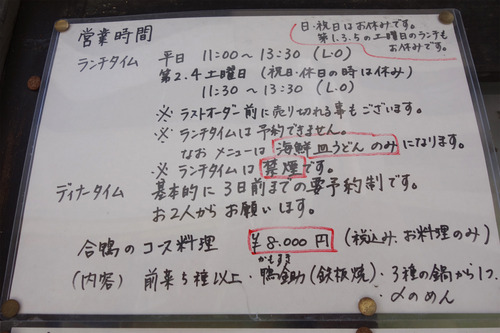 営業時間
日・祝日はお休みです。
第1.3.5の土曜日のランチも
お休みです。
ランチタイム 平日 11:00～13:30 (L・O)
第2.4土曜日 (祝日・休日の時は休み)
11:30～13:30
※ ラストオーダー前に売り切れる事もございます。
※ ランチタイムは予約できません。
なお メニューは 海鮮皿うどんのみ になります。
※ ランチタイムは 禁煙 です。
ディナータイム 基本的に3日前までの要予約制です。
お2人からお願いします。
合鴨のコース料理 ¥8.000円 (税込み.お料理のみ)
かもすき
(内容) 前菜5種以上・鴨鋤(鉄板焼)・3種の鍋から1つ
・〆のめん